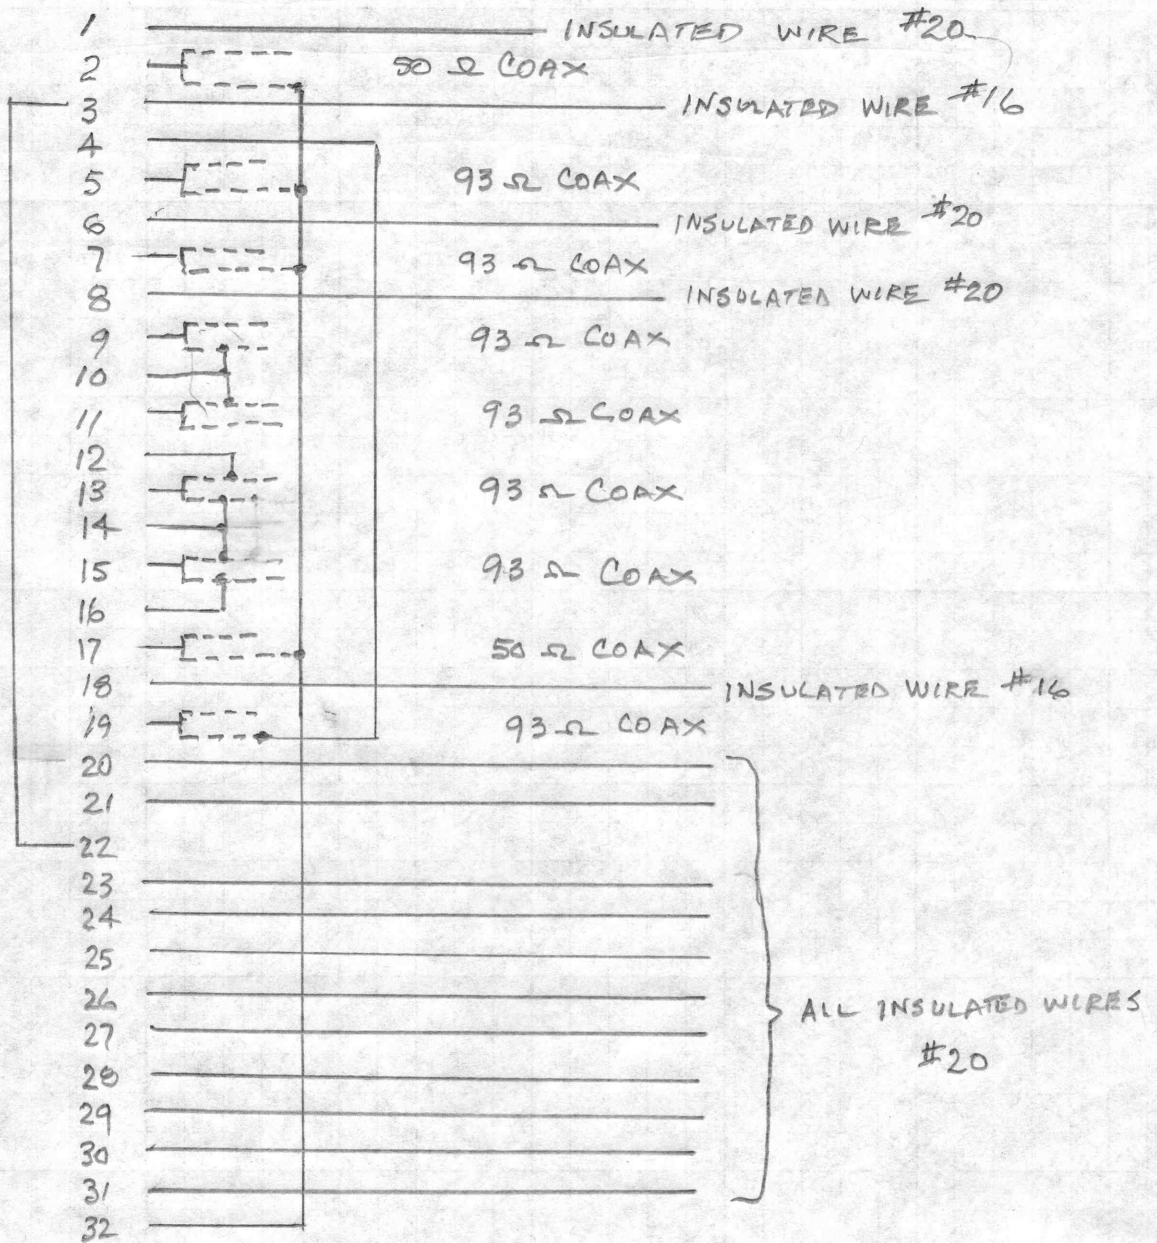 1 INSULATED WIRE #20
2 50 Ω COAX
3 INSULATED WIRE #16
4
5 93 Ω COAX
6 INSULATED WIRE #20
7 93 Ω COAX
8 INSULATED WIRE #20
9 93 Ω COAX
10
11 93 Ω COAX
12
13 93 Ω COAX
14
15 93 Ω COAX
16
17 50 Ω COAX
18 INSULATED WIRE #16
19 93 Ω COAX
20
21
22
23
24
25
26 ALL INSULATED WIRES
27 #20
28
29
30
31
32